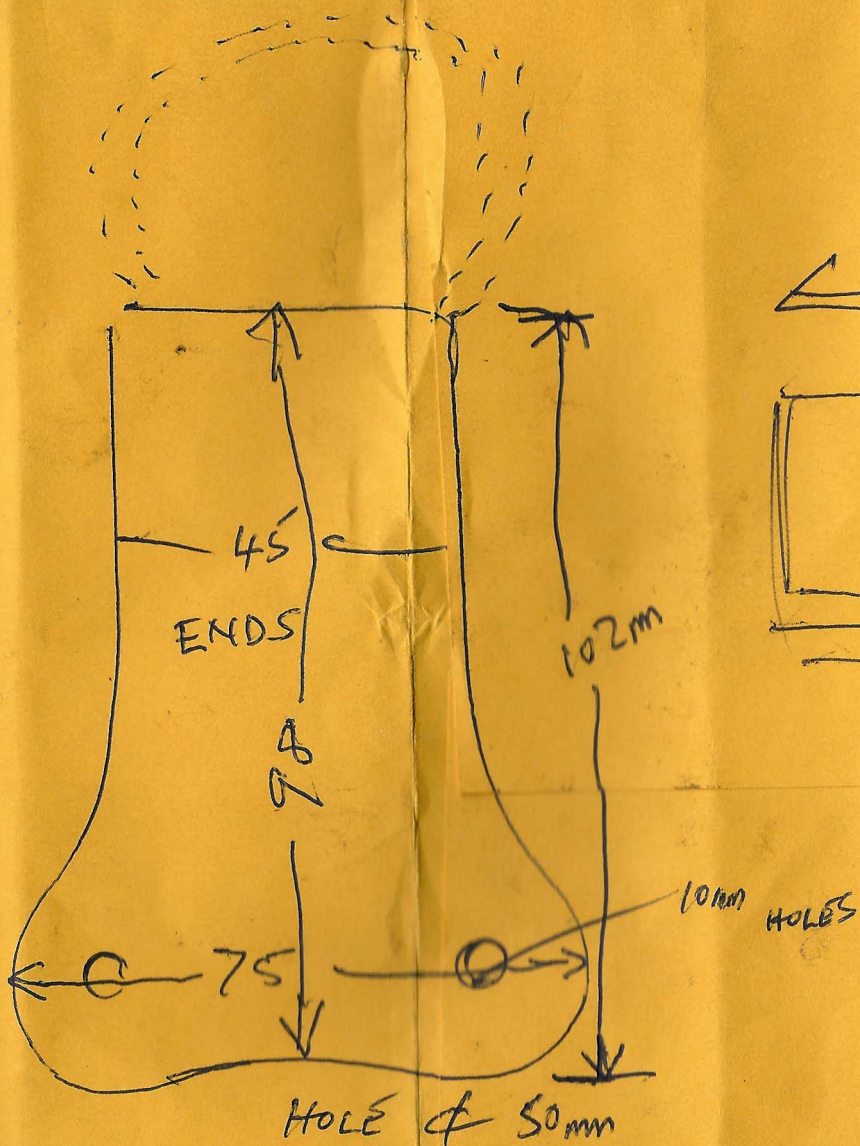 45
ENDS
102m
98
10mm HOLES
75
HOLE ⊄ 50mm